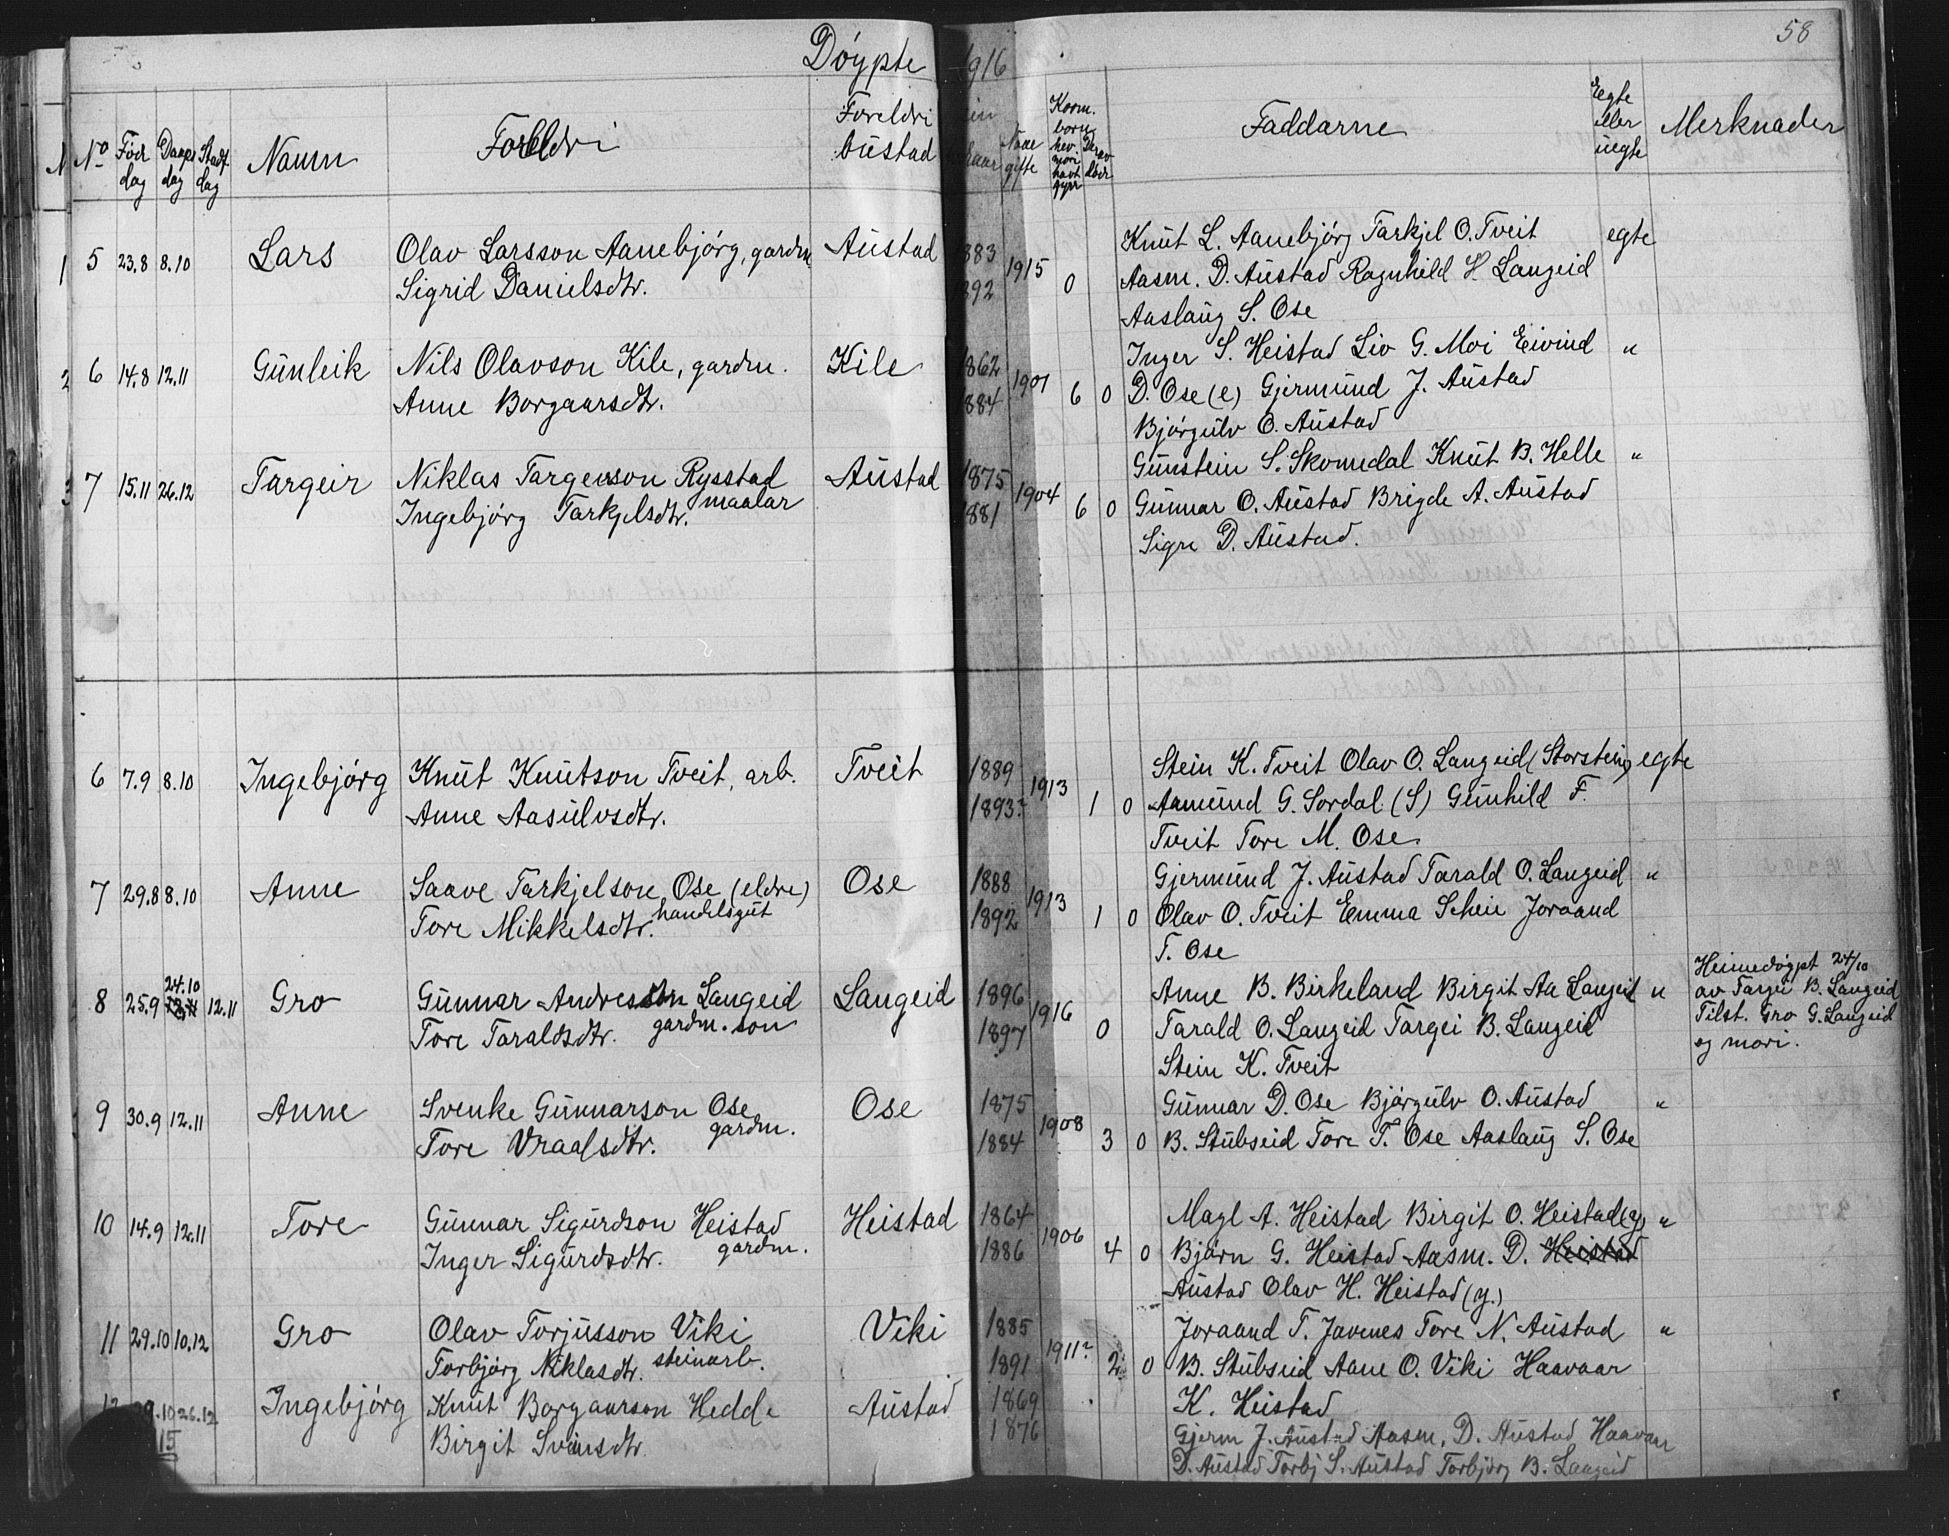 58
Döypte 1916
No Fød dag Daaps dag Stadf. dag Namn Foreldri Foreldri bustad Naar gifte Korm. born hev mori havt fyrr Derav døde Faddarne Egte eller uegte Merknader
5 23.8 8.10 Lars Olav Larsson Aanebjørg, gardm. Austad 1883 1915 0 Knut L. Aanebjørg Tarkjel O. Tveit egte
Sigrid Danielsdtr. 1892 Aasm. D. Austad Ragnhild H. Langeid
Aaslaug S. Ose
6 14.8 12.11 Gunleik Nils Olavson Kile, gardm. Kile 1862 1901 6 0 Inger S. Heistad Liv G. Moi Eivind "
Anne Borgaarsdtr. 1884 D. Ose (e) Gjermund J. Austad
Bjørgulv O. Austad
7 15.11 26.12 Targeir Niklas Targeirson Rysstad Austad 1875 1904 6 0 Gunstein S. Skomedal Knut B. Helle "
maalar
Ingebjørg Tarkjelsdtr. 1881 Gunnar O. Austad Brigde A. Austad
Signe D. Austad.
6 7.9 8.10 Ingebjørg Knut Knutson Tveit, arb. Tveit 1889 1913 1 0 Stein K. Tveit Olav O. Langeid (Storstein) egte
Anne Aasulvsdtr. 1893? Aamund G. Sordal (S) Gunhild F.
Tveit Tore M. Ose
7 29.8 8.10 Anne Saave Tarkjelson Ose (eldre) Ose 1888 1913 1 0 Gjermund J. Austad Tarald O. Langeid "
handelsgut
Tore Mikkelsdtr. 1892 Olav O. Tveit Emma Scheie Joraand
T. Ose
8 25.9 24.10 12.11 Gro Gunnar Andresson Langeid Langeid 1896 1916 0 Anne B. Birkeland Birgit Aa Langeid " Heimedøypt 24/10
gardm. son av Targei B. Langeid
Tore Taraldsdtr. 1897 Tarald O. Langeid Targei B. Langeid Tilst. Gro G. Langeid
Stein K. Tveit og mori.
9 30.9 12.11 Anne Svenke Gunnarson Ose Ose 1875 1908 3 0 Gunnar D. Ose Bjørgulv O. Austad "
gardm.
Tore Vraalsdtr. 1884 B. Stubseid Tore T. Ose Aaslaug S. Ose
10 14.9 12.11 Tore Gunnar Sigurdson Heistad Heistad 1864 1906 4 0 Magl A. Heistad Birgit O. Heistad (y) "
gardm.
Inger Sigurdsdtr. 1886 Bjørn G. Heistad Aasm. D. Heistad
Austad Olav H. Heistad (y.)
11 29.10 10.12 Gro Olav Torjusson Viki Viki 1885 1911? 2 0 Joraand T. Javenes Tore N. Austad "
steinarb.
Torbjørg Niklasdtr. 1891 B. Stubseid Aane O. Viki Haavaar
K. Heistad
12 29.10 26.12 Ingebjørg Knut Borgaarson Hedde Austad 1869 Gjerm J. Austad Aasm. D. Austad Haavaar
Birgit Sveinsdtr 1876 D. Austad Torbj S. Austad Torbjørg B. Langeid
15